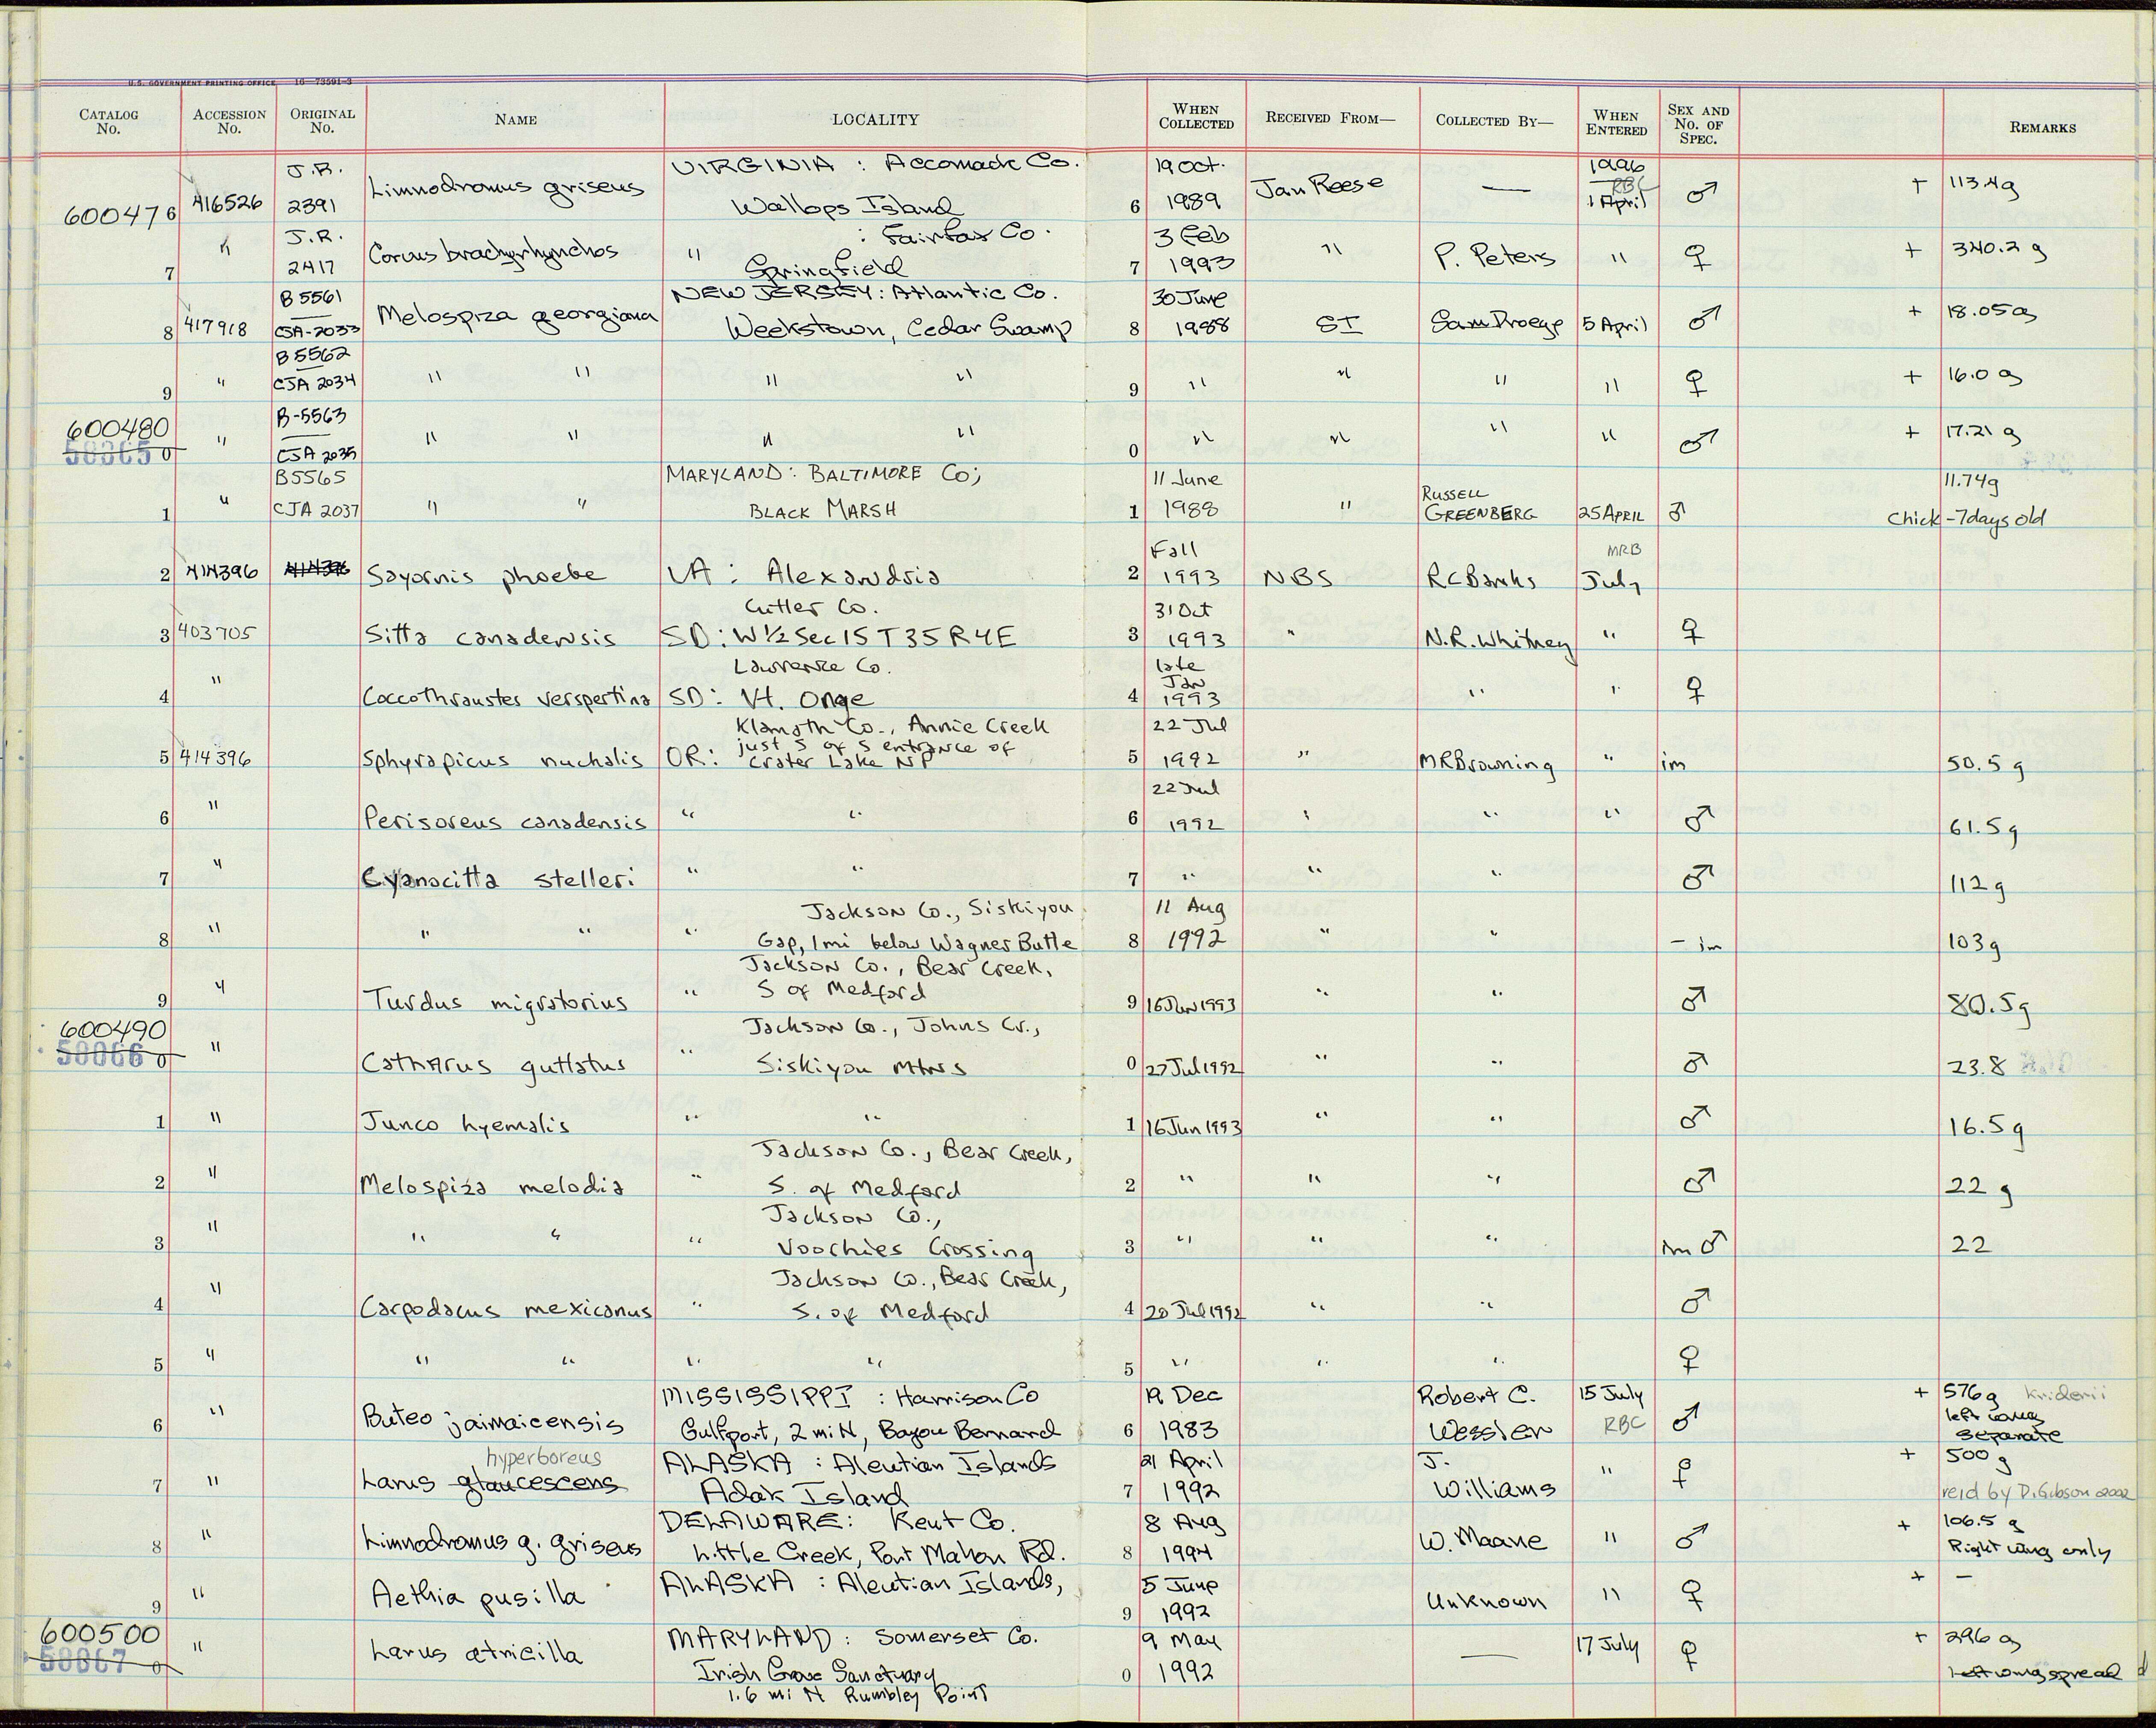 U.S. GOVERNMENT PRINTING OFFICE 16—73591-3
CATALOG No. ACCESSION No. ORIGINAL No. NAME LOCALITY WHEN COLLECTED RECEIVED FROM— COLLECTED BY— WHEN ENTERED SEX AND No. OF SPEC. REMARKS
J.R. VIRGINIA : Accomack Co. 19 Oct. 1996
600476 416526 2391 Limnodromus griseus Wallops Island 6 1989 Jan Reese — RBC 1 April ♂ + 113.4g
J.R. : Fairfax Co. 3 Feb
7 " 2417 Corvus brachyrhynchos " Springfield 7 1993 " P. Peters " ♀ + 340.2 g
B 5561 NEW JERSEY: Atlantic Co. 30 June
8 417918 CJA-2033 Melospiza georgiana Weekstown, Cedar Swamp 8 1988 SI Sam Droege 5 April ♂ + 18.05 g
B 5562
9 " CJA 2034 " " " " 9 " " " " ♀ + 16.0 g
600480 B-5563
58065 0 " CJA 2035 " " " " 0 " " " " ♂ + 17.21 g
B5565 MARYLAND: BALTIMORE Co; 11 June RUSSELL 11.74g
1 " CJA 2037 " " BLACK MARSH 1 1988 " GREENBERG 25 APRIL ♂ Chick -7days old
Fall MRB
2 414396 414396 Sayornis phoebe VA: Alexandria 2 1993 NBS RCBanks July
Cutler Co. 31 Oct
3 403705 Sitta canadensis SD: W ½ Sec 15 T35 R4E 3 1993 " N.R. Whitney " ♀
Lawrence Co. late Jan
4 " Coccothraustes verspertina SD: St. Onge 4 1993 " " ♀
Klamath Co., Annie Creek 22 Jul
just S of S entrance of
5 414396 Sphyrapicus nuchalis OR: Crater Lake NP 5 1992 " MRBrowning " im 50.5 g
22 Jul
6 " Perisoreus canadensis " " 6 1992 " " " ♂ 61.5 g
7 " Cyanocitta stelleri " " 7 " " " ♂ 112 g
Jackson Co., Siskiyou 11 Aug
8 " " " " Gap, 1mi below Wagner Butte 8 1992 " " - im 103 g
Jackson Co., Bear Creek,
9 " Turdus migratorius " S of Medford 9 16 Jun 1993 " " ♂ 80.5 g
600490 Jackson Co., Johns Cr.,
58066 0 " Catharus guttatus " Siskiyou Mtns 0 27 Jul 1992 " " ♂ 23.8
1 " Junco hyemalis " " 1 16 Jun 1993 " " ♂ 16.5 g
Jackson Co., Bear Creek,
2 " Melospiza melodia " S. of Medford 2 " " " ♂ 22 g
Jackson Co.,
3 " " " " Voorhies Crossing 3 " " " im ♂ 22
Jackson Co., Bear Creek,
4 " Carpodacus mexicanus " S. of Medford 4 20 Jul 1992 " " ♂
5 " " " " " 5 " " " ♀
MISSISSIPPI : Harrison Co 19 Dec Robert C. 15 July + 576 g kriderii
6 " Buteo jaimaicensis Gulfport, 2 mi N, Bayou Bernard 6 1983 Wessler RBC ♂ left wing separate
hyperboreus ALASKA : Aleutian Islands 21 April J. + 500 g
7 " Larus glaucescens Adak Island 7 1992 Williams " ♀ reid by D. Gibson 2002
DELAWARE: Kent Co. 8 Aug + 106.5 g
8 " Limnodromus g. griseus Little Creek, Port Mahon Rd. 8 1994 W. Maane " ♂ Right wing only
ALASKA : Aleutian Islands, 5 June + —
9 " Aethia pusilla 9 1992 Unknown " ♀
600500 MARYLAND: Somerset Co. 9 May 17 July + 296 g
58067 0 " Larus atricilla Irish Grove Sanctuary 0 1992 — ♀ left wing spread
1.6 mi N Rumbley Point